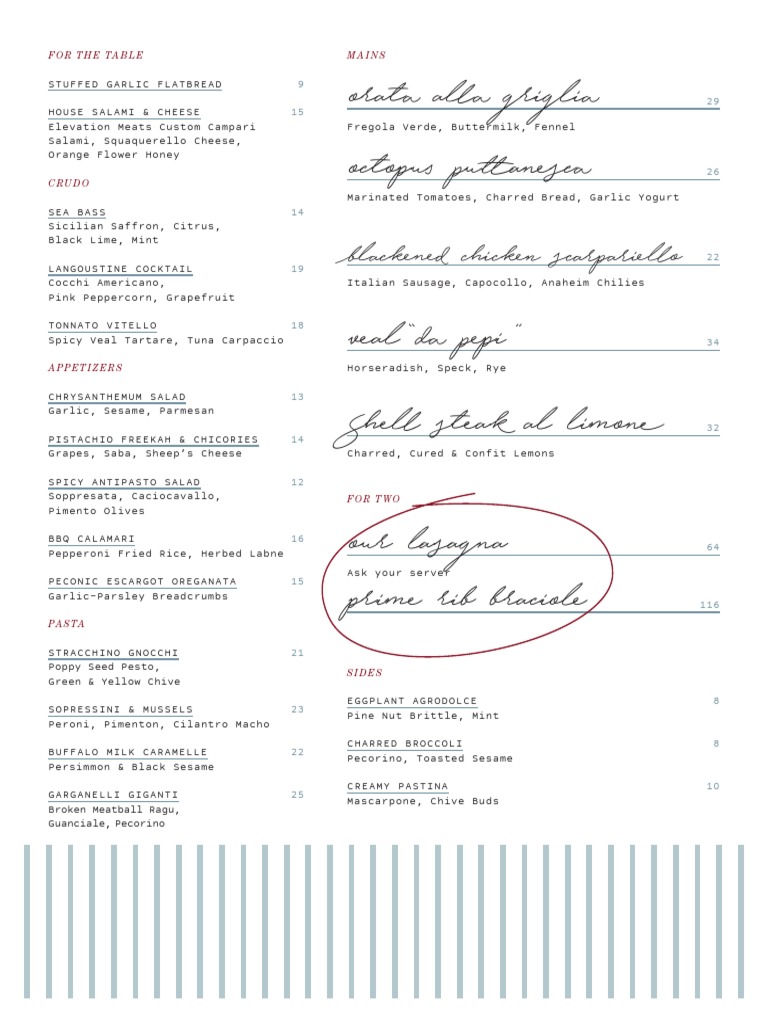 FOR THE TABLE
STUFFED GARLIC FLATBREAD 9
HOUSE SALAMI & CHEESE 15
Elevation Meats Custom Campari
Salami, Squaquerello Cheese,
Orange Flower Honey
CRUDO
SEA BASS 14
Sicilian Saffron, Citrus,
Black Lime, Mint
LANGOUSTINE COCKTAIL 19
Cocchi Americano,
Pink Peppercorn, Grapefruit
TONNATO VITELLO 18
Spicy Veal Tartare, Tuna Carpaccio
APPETIZERS
CHRYSANTHEMUM SALAD 13
Garlic, Sesame, Parmesan
PISTACHIO FREEKAH & CHICORIES 14
Grapes, Saba, Sheep's Cheese
SPICY ANTIPASTO SALAD 12
Soppresata, Caciocavallo,
Pimento Olives
BBQ CALAMARI 16
Pepperoni Fried Rice, Herbed Labne
PECONIC ESCARGOT OREGANATA 15
Garlic-Parsley Breadcrumbs
PASTA
STRACCHINO GNOCCHI 21
Poppy Seed Pesto,
Green & Yellow Chive
SOPRESSINI & MUSSELS 23
Peroni, Pimenton, Cilantro Macho
BUFFALO MILK CARAMELLE 22
Persimmon & Black Sesame
GARGANELLI GIGANTI 25
Broken Meatball Ragu,
Guanciale, Pecorino
MAINS
orata alla griglia 29
Fregola Verde, Buttermilk, Fennel
octopus puttanesca 26
Marinated Tomatoes, Charred Bread, Garlic Yogurt
blackened chicken scarpariello 22
Italian Sausage, Capocollo, Anaheim Chilies
veal "da pepi" 34
Horseradish, Speck, Rye
Shell steak al limone 32
Charred, Cured & Confit Lemons
FOR TWO
our lasagna 64
Ask your server
prime rib braciole 116
SIDES
EGGPLANT AGRODOLCE 8
Pine Nut Brittle, Mint
CHARRED BROCCOLI 8
Pecorino, Toasted Sesame
CREAMY PASTINA 10
Mascarpone, Chive Buds